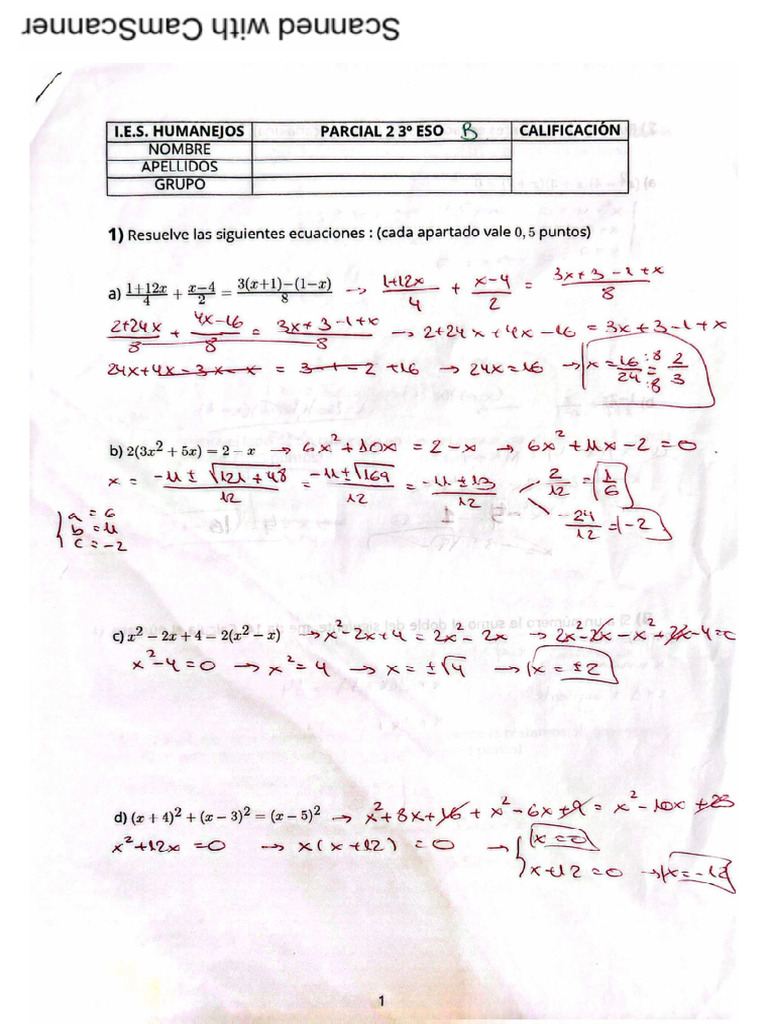 Scanned with CamScanner
I.E.S. HUMANEJOS PARCIAL 2 3º ESO B CALIFICACIÓN
NOMBRE
APELLIDOS
GRUPO
1) Resuelve las siguientes ecuaciones : (cada apartado vale 0, 5 puntos)
a) (1+12x)/4 + (x−4)/2 = (3(x+1)−(1−x))/8 → (1+12x)/4 + (x−4)/2 = (3x+3−1+x)/8
(2+24x)/8 + (4x−16)/8 = (3x+3−1+x)/8 → 2+24x+4x−16 = 3x+3−1+x
24x+4x−3x−x = 3−1−2+16 → 24x=16 → x = 16/24 :8/:8 = 2/3
b) 2(3x² + 5x) = 2 − x → 6x²+10x = 2−x → 6x²+11x−2=0
x = (−11 ± √(121+48))/12 = (−11±√169)/12 = (−11±13)/12 2/12 = 1/6
−24/12 = −2
a = 6
b = 11
c = −2
c) x² − 2x + 4 − 2(x² − x) → x²−2x+4 = 2x²−2x → 2x−2x−x²+2x−4=0
x²−4=0 → x²=4 → x=±√4 → x=±2
d) (x + 4)² + (x − 3)² = (x − 5)² → x²+8x+16 + x²−6x+9 = x²−10x+25
x²+12x=0 → x(x+12)=0 → x=0
x+12=0 → x=−12
1